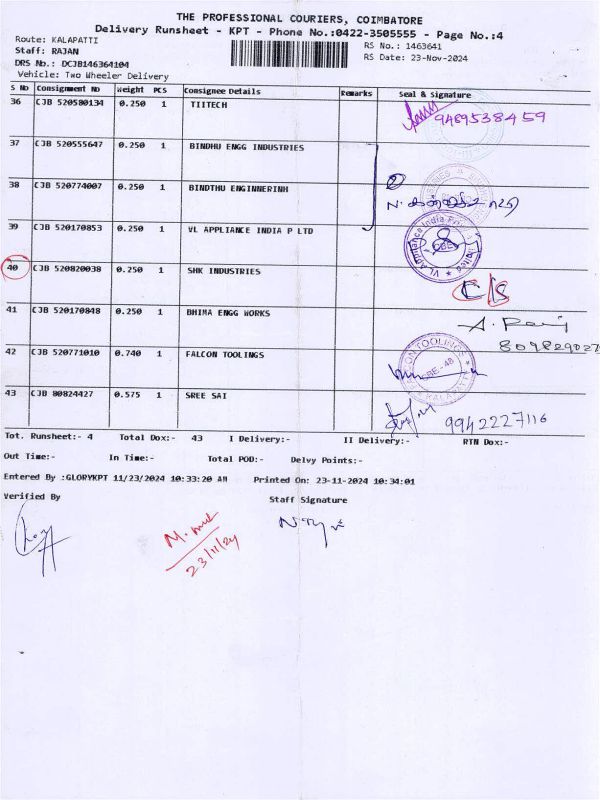 THE PROFESSIONAL COURIERS, COIMBATORE
Delivery Runsheet - KPT - Phone No.:0422-3505555 - Page No.:4
Route: KALAPATTI
RS No.: 1463641
Staff: RAJAN
RS Date: 23-Nov-2024
DRS No.: DCJB146364104
Vehicle: Two Wheeler Delivery
S No Consignment No Weight PCS Consignee Details Remarks Seal & Signature
36 CJB 520580134 0.250 1 TIITECH
37 CJB 520555647 0.250 1 BINDHU ENGG INDUSTRIES
38 CJB 520774007 0.250 1 BINDTHU ENGINNERINH
39 CJB 520170853 0.250 1 VL APPLIANCE INDIA P LTD
40 CJB 520820038 0.250 1 SHK INDUSTRIES C/S
41 CJB 520170848 0.250 1 BHIMA ENGG WORKS
42 CJB 520771010 0.740 1 FALCON TOOLINGS
FALCON TOOLINGS CBE - 48 KALAPATTI
43 CJB 80824427 0.575 1 SREE SAI 9942227116
Tot. Runsheet:- 4 Total Dox:- 43 I Delivery:- II Delivery:- RTN Dox:-
Out Time:- In Time:- Total POD:- Delvy Points:-
Entered By :GLORYKPT 11/23/2024 10:33:20 AM Printed On: 23-11-2024 10:34:01
Verified By Staff Signature
23/11/24